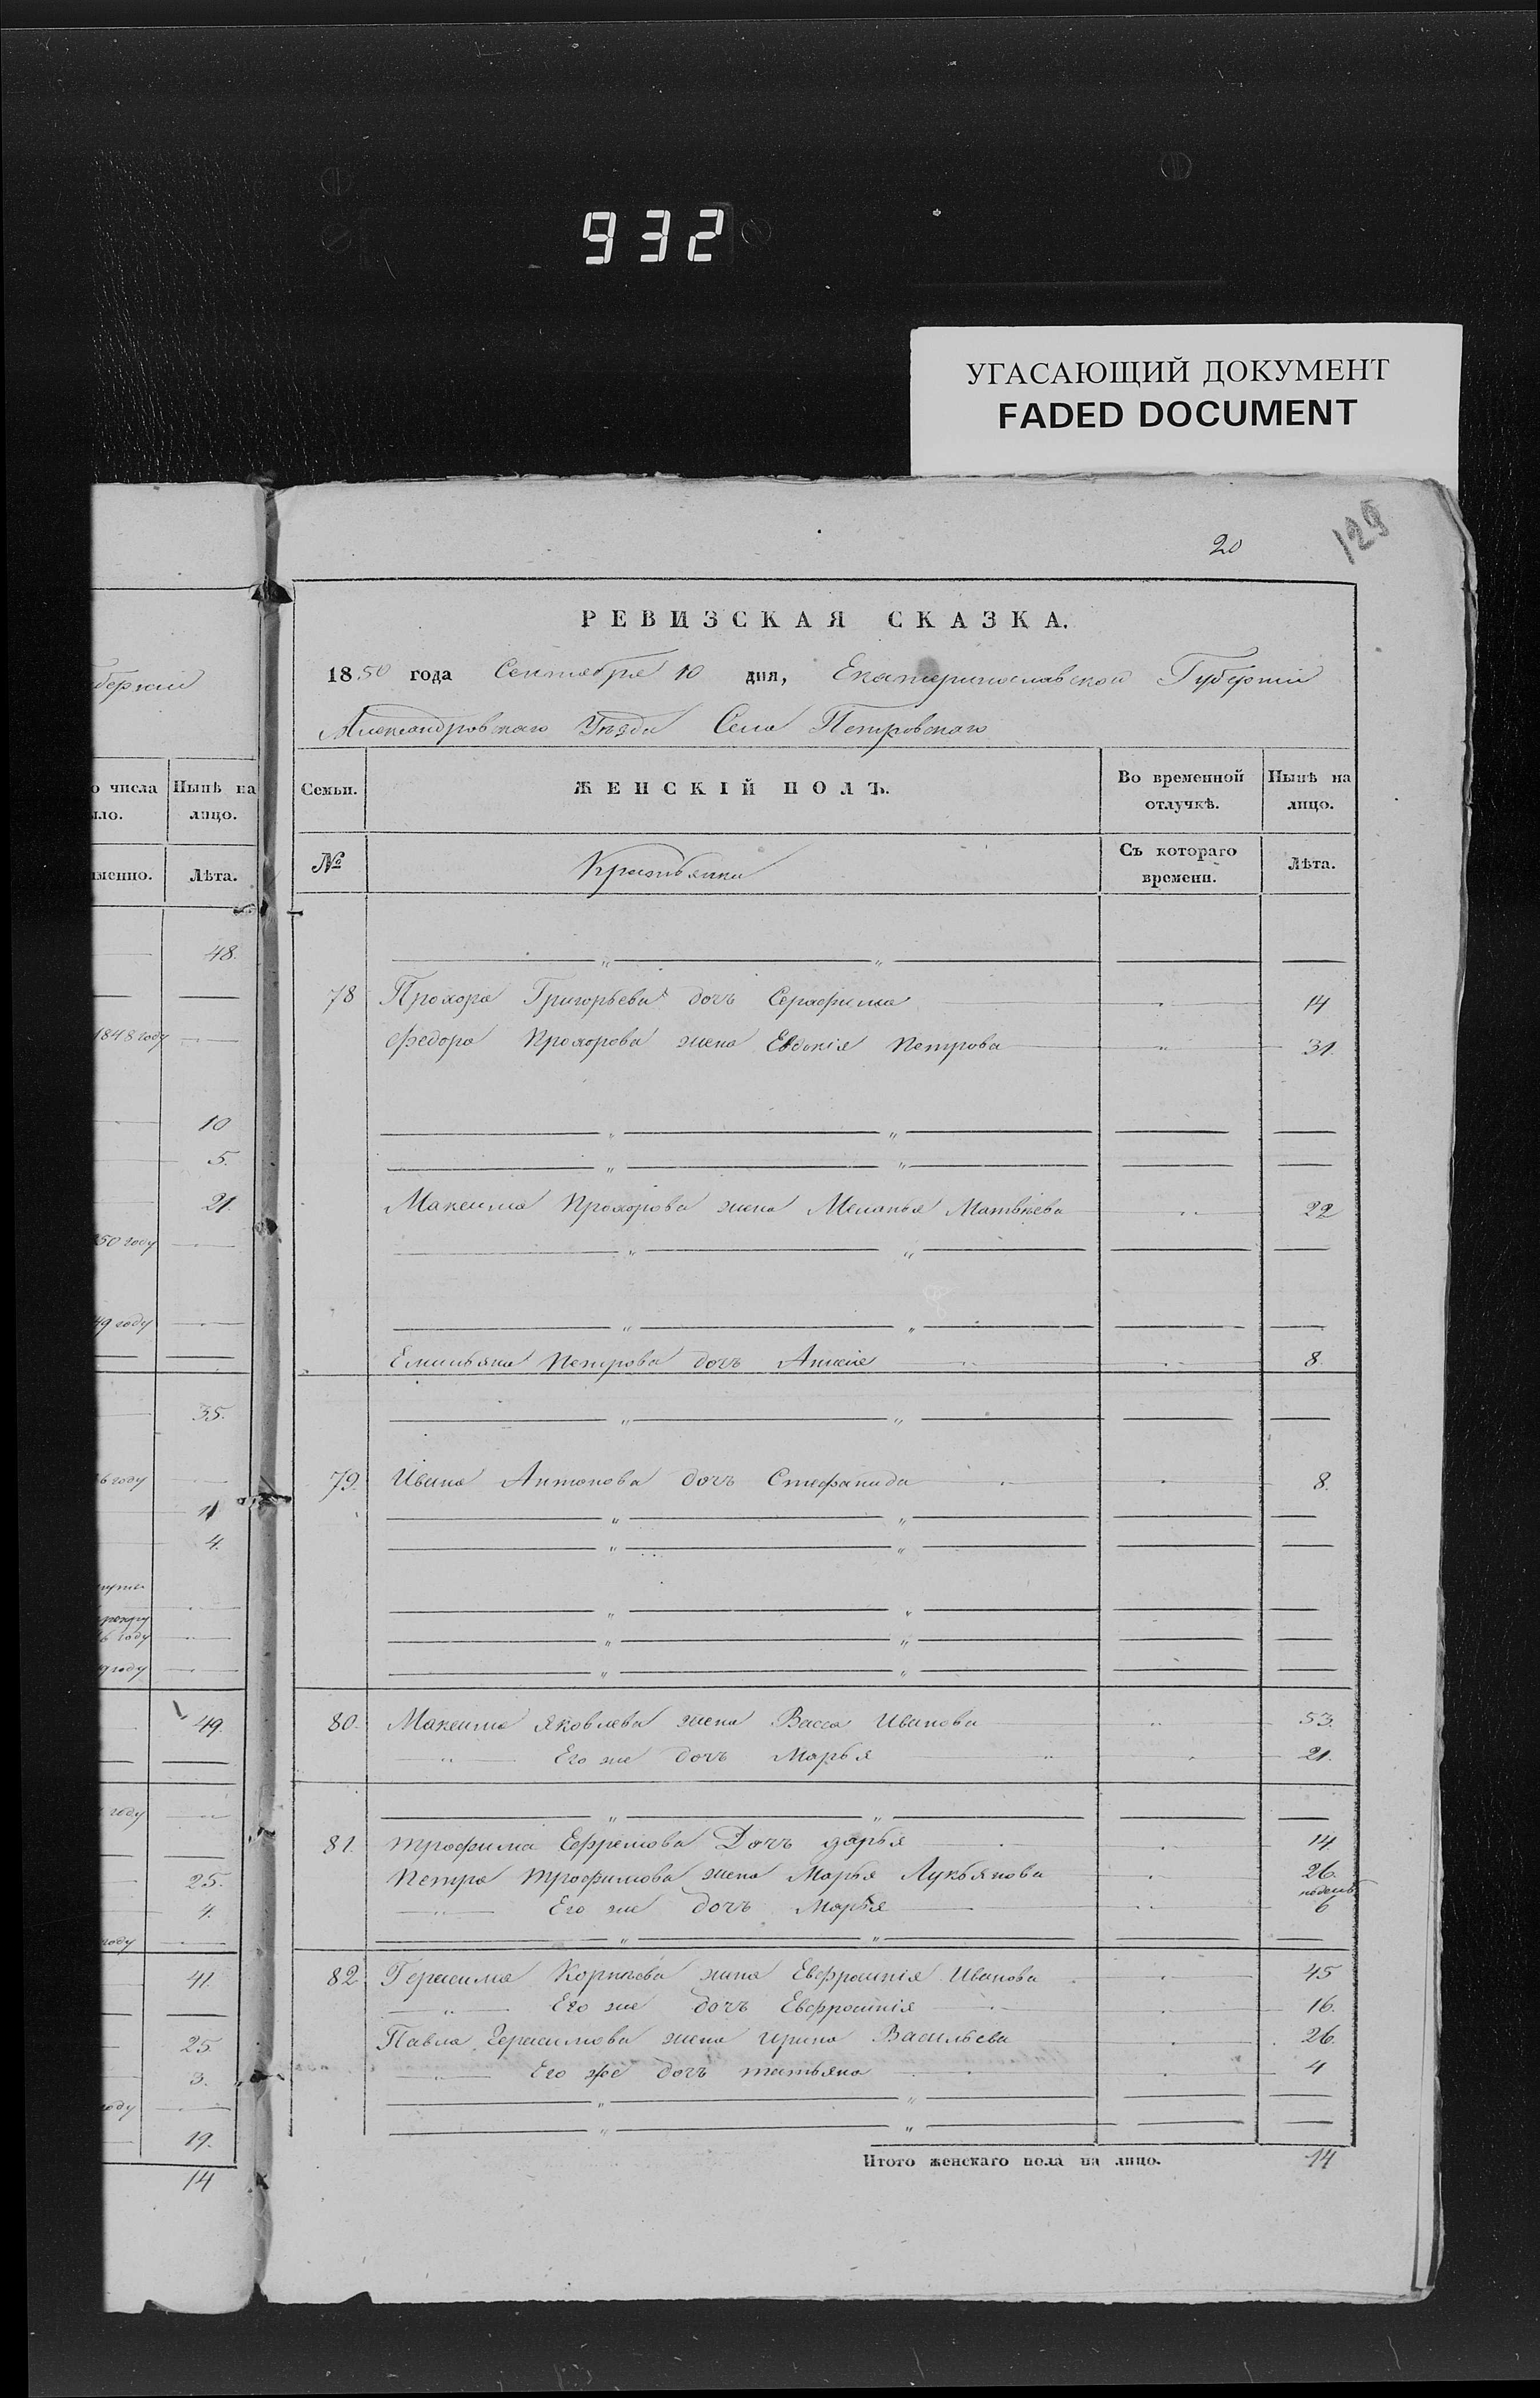 932
УГАСАЮЩИЙ ДОКУМЕНТ
FADED DOCUMENT
129
20
РЕВИЗСКАЯ СКАЗКА.
1850 года Сентября 10 дня, Екатеринославской Губерніи
Александровскаго Уѣзда Села Петровскаго
Семьи. ЖЕНСКІЙ ПОЛЪ. Во временной отлучкѣ. Нынѣ на лицо.
№ Крестьянки Съ котораго времени. Лѣта.
78 Прохора Григорьева дочь Серафима 14
Федора Прохорова жена Евдокія Петрова 31.
Максима Прохорова жена Меланья Матвѣева 22
Емильяна Петрова дочь Анисія 8.
79. Ивана Антонова дочь Стефанида 8.
80. Максима Яковлева жена Васса Иванова 53.
Его же дочь Марья 21.
81. Трофима Ефремова Дочь дарья 14.
Петра Трофимова жена Марья Лукьянова 26.
Его же дочь Марья 6
82 Герасима Корнѣева жена Евфросинія Иванова 45
Его же дочь Евфросинія 16.
Павла Герасимова жена ирина Васильева 26.
Его же дочь татьяна 4
Итого женскаго пола на лицо. 14
берніи
о числа
ыло. Нынѣ на лицо.
именно. Лѣта.
48.
1848 году
10
5.
21.
50 году
49 году
35.
6 году
4.
6 году
году
49.
году
25.
4.
году
41.
25
3.
году
19.
14